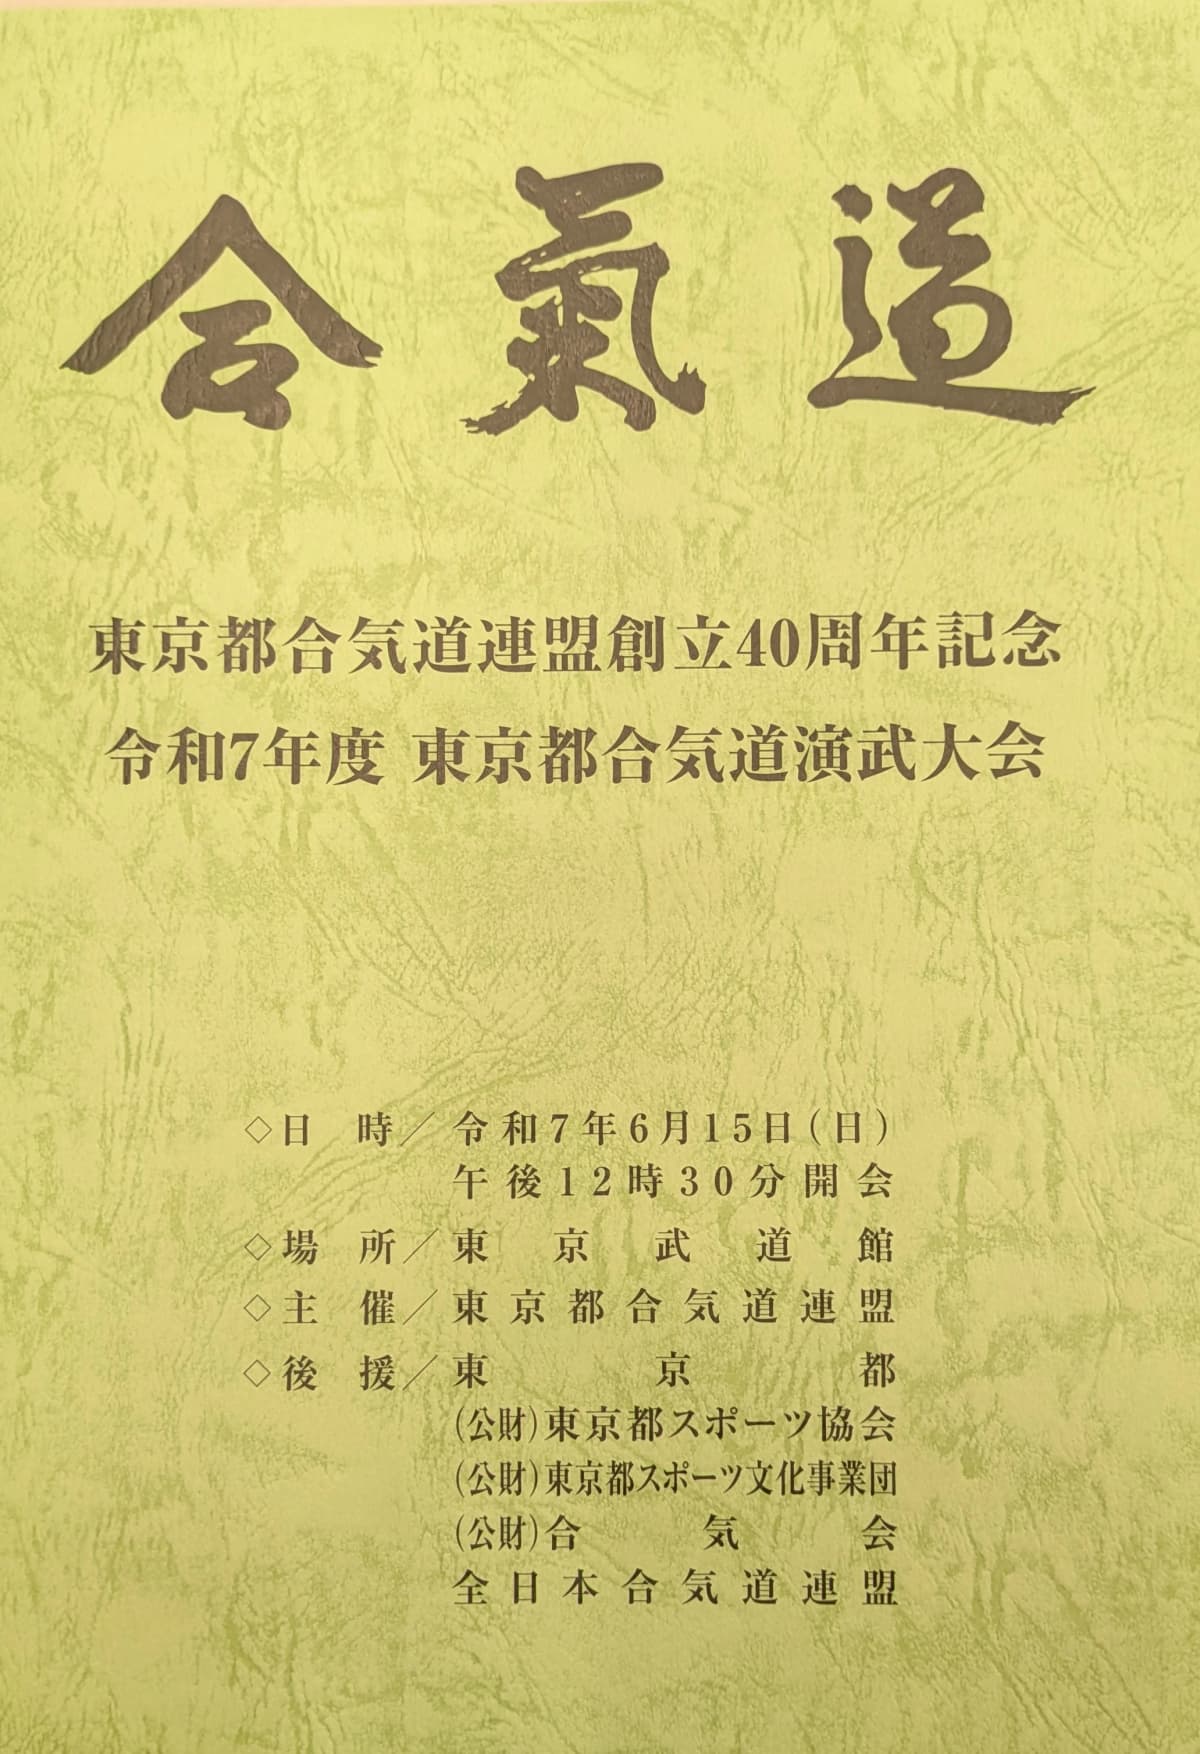 合氣道
東京都合気道連盟創立40周年記念
令和7年度 東京都合気道演武大会
◇日 時／令和7年6月15日(日)
午後12時30分開会
◇場 所／東京武道館
◇主 催／東京都合気道連盟
◇後 援／東京都
(公財)東京都スポーツ協会
(公財)東京都スポーツ文化事業団
(公財)合気会
全日本合気道連盟